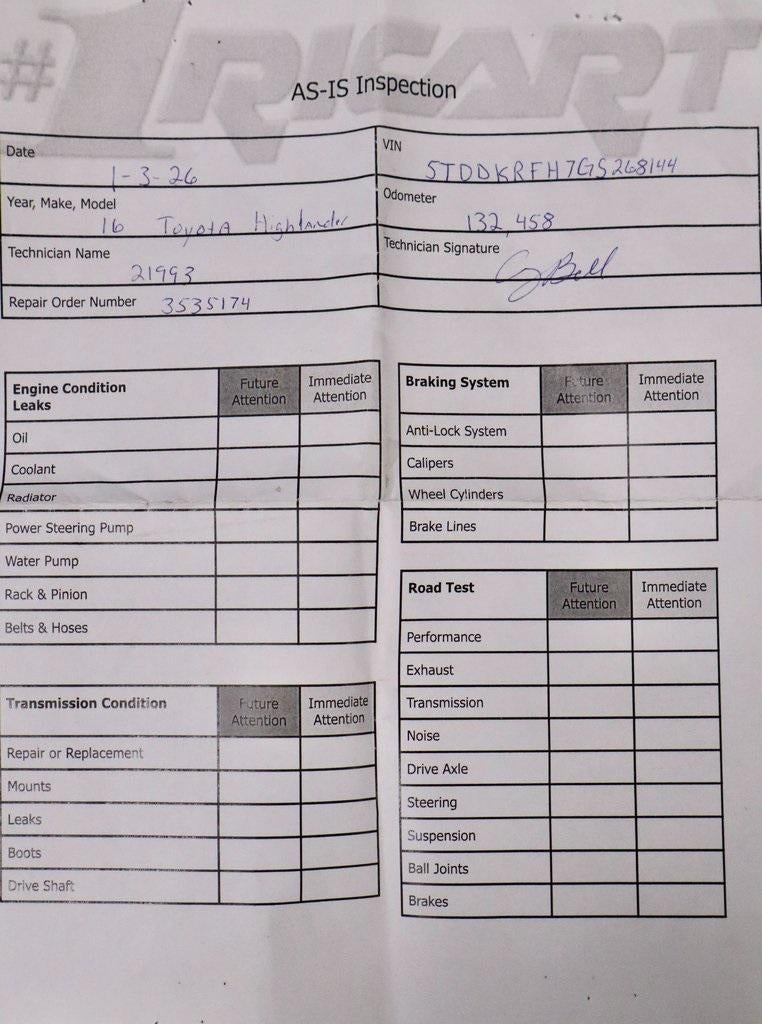 #1 RICART
AS-IS Inspection
Date 1-3-26
VIN 5TDDKRFH7GS268144
Year, Make, Model 16 Toyota Highlander
Odometer 132,458
Technician Name 21993
Technician Signature
Repair Order Number 3535174
Engine Condition Leaks Future Attention Immediate Attention
Oil
Coolant
Radiator
Power Steering Pump
Water Pump
Rack & Pinion
Belts & Hoses
Transmission Condition Future Attention Immediate Attention
Repair or Replacement
Mounts
Leaks
Boots
Drive Shaft
Braking System Future Attention Immediate Attention
Anti-Lock System
Calipers
Wheel Cylinders
Brake Lines
Road Test Future Attention Immediate Attention
Performance
Exhaust
Transmission
Noise
Drive Axle
Steering
Suspension
Ball Joints
Brakes